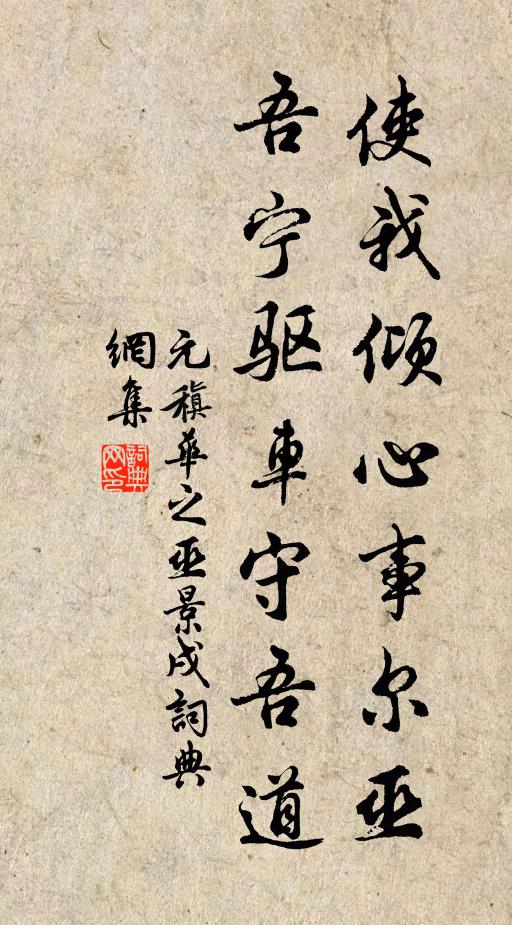 使我倾心事尔巫
吾宁驱車守吾道
元稹華之巫景戌詞典
網集
詞典
网印